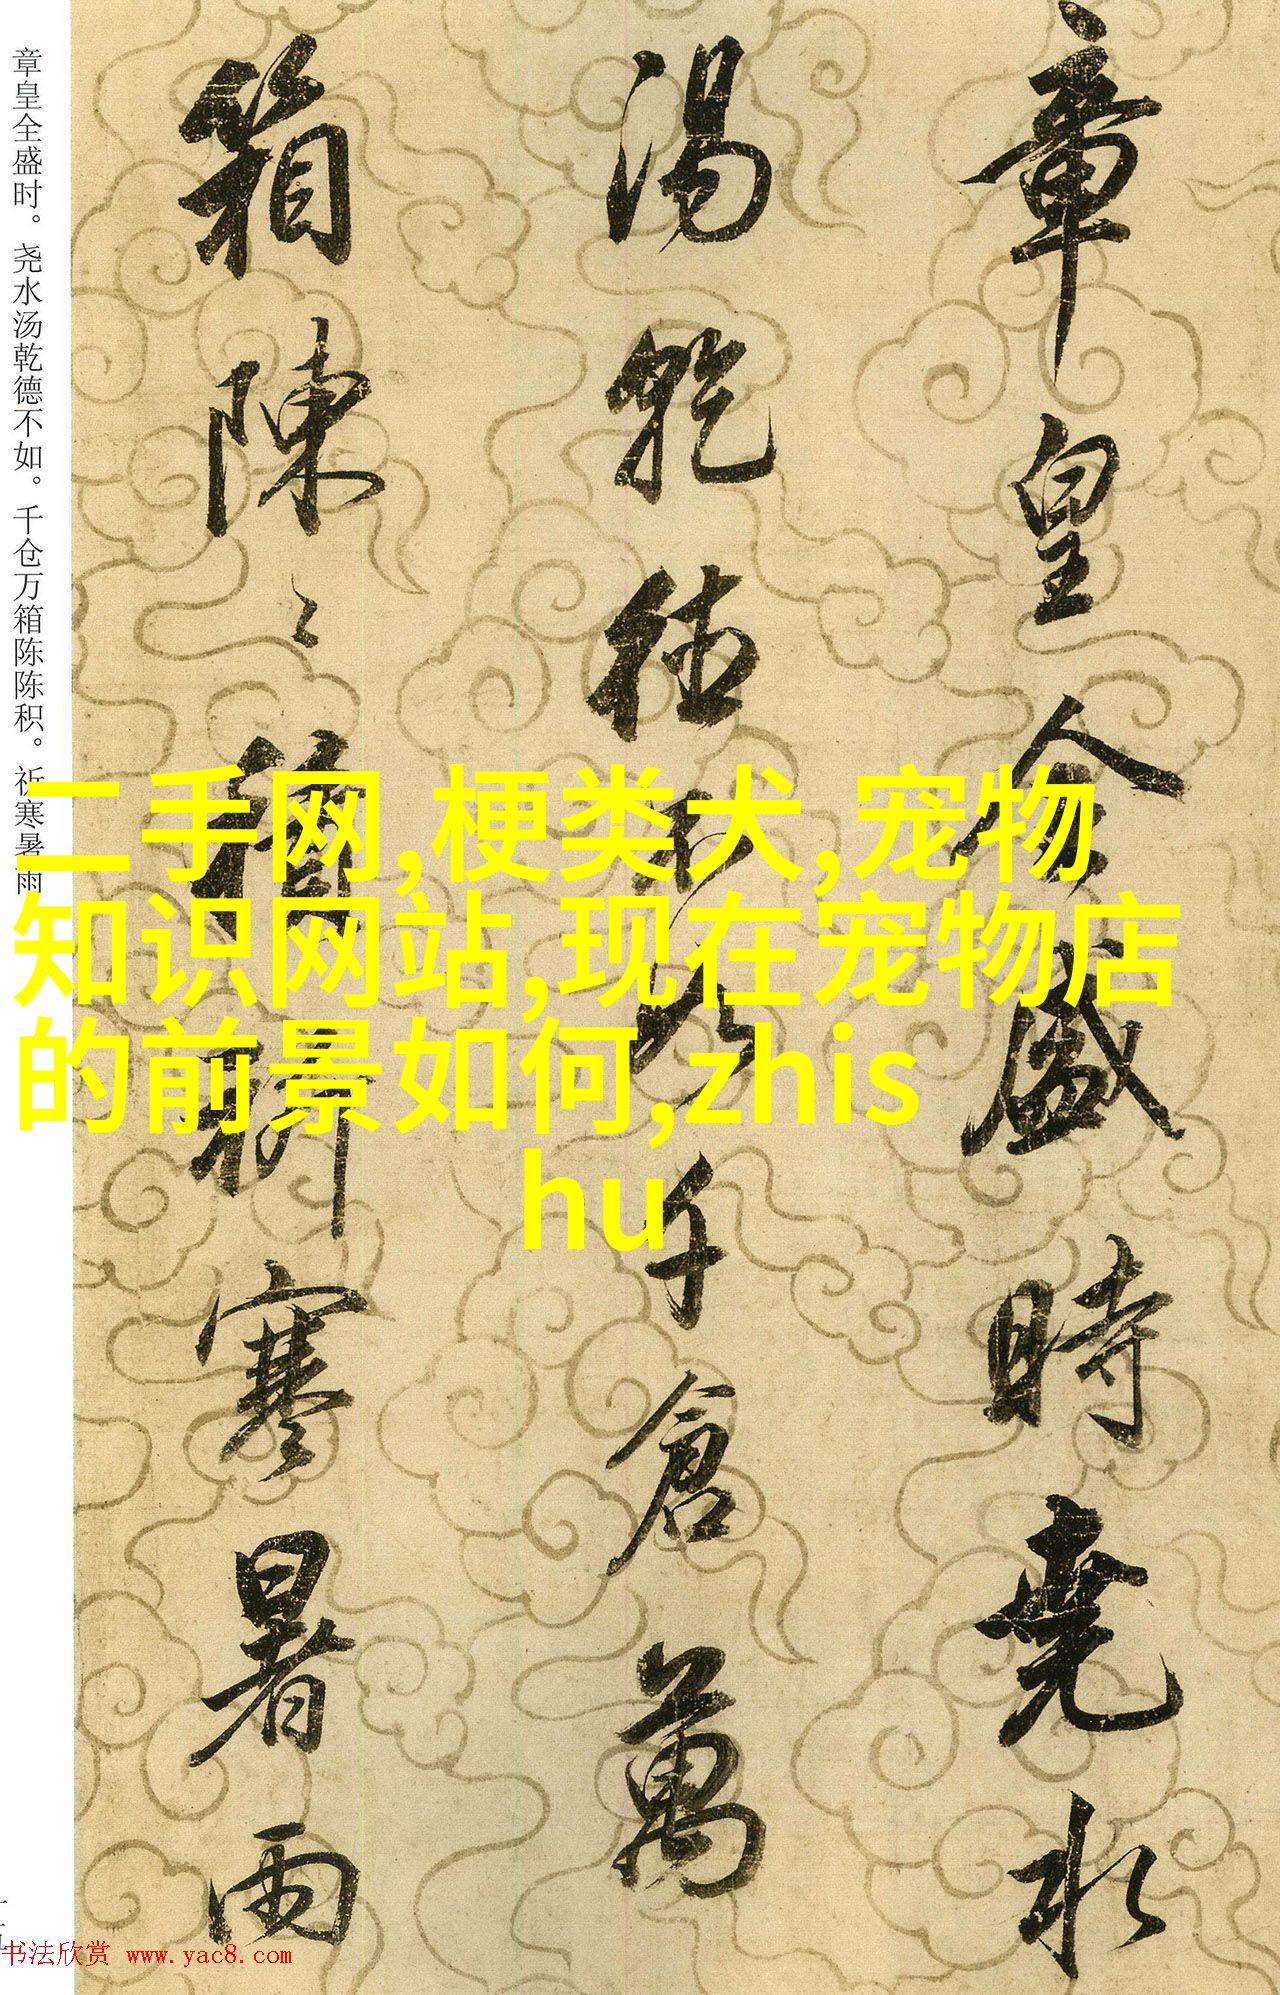 章皇全盛時堯水
湯乾德不如千倉萬
箱陳〻積祈寒暑雨
章皇全盛时。尧水汤乾德不如。千仓万箱陈陈积。祈寒暑雨
二手网,梗类犬,宠物
知识网站,现在宠物店
的前景如何,zhis
hu
书法欣赏 www.yac8.com